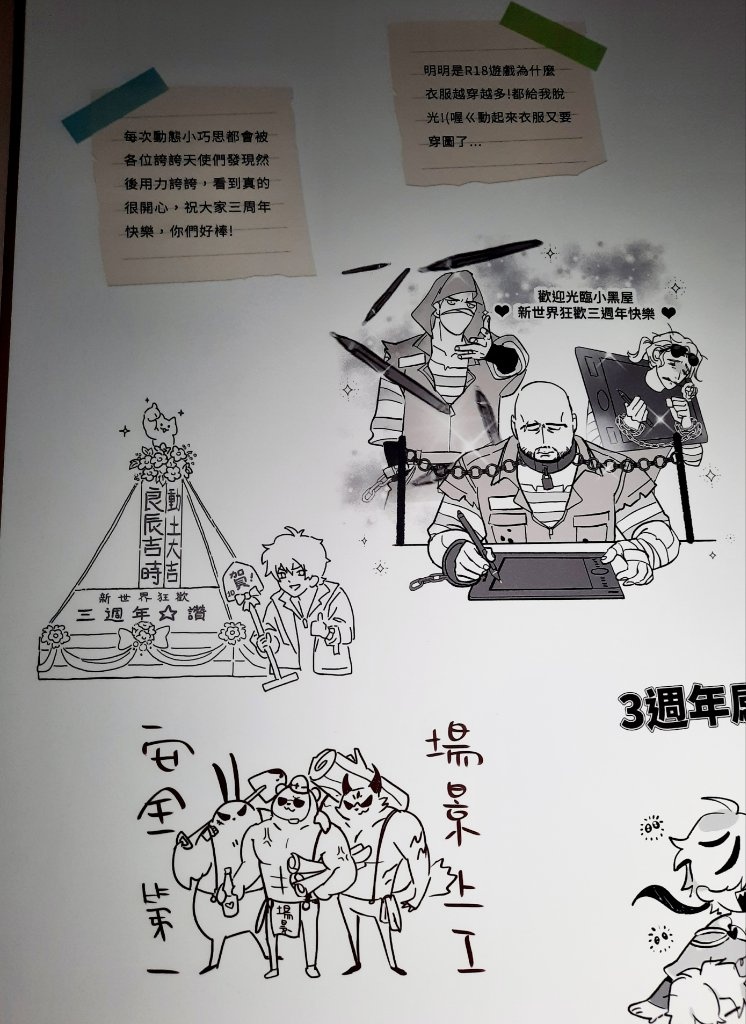 明明是R18遊戲為什麼
衣服越穿越多!都給我脫
光!(喔ㄍ動起來衣服又要
穿圖了...
每次動態小巧思都會被
各位誇誇天使們發現然
後用力誇誇，看到真的
很開心，祝大家三周年
快樂，你們好棒!
歡迎光臨小黑屋
❤ 新世界狂歡三週年快樂 ❤
動土大吉
良辰吉時
賀!
新世界狂歡
三週年☆讚
3週年
場景上工
安全第一
場景